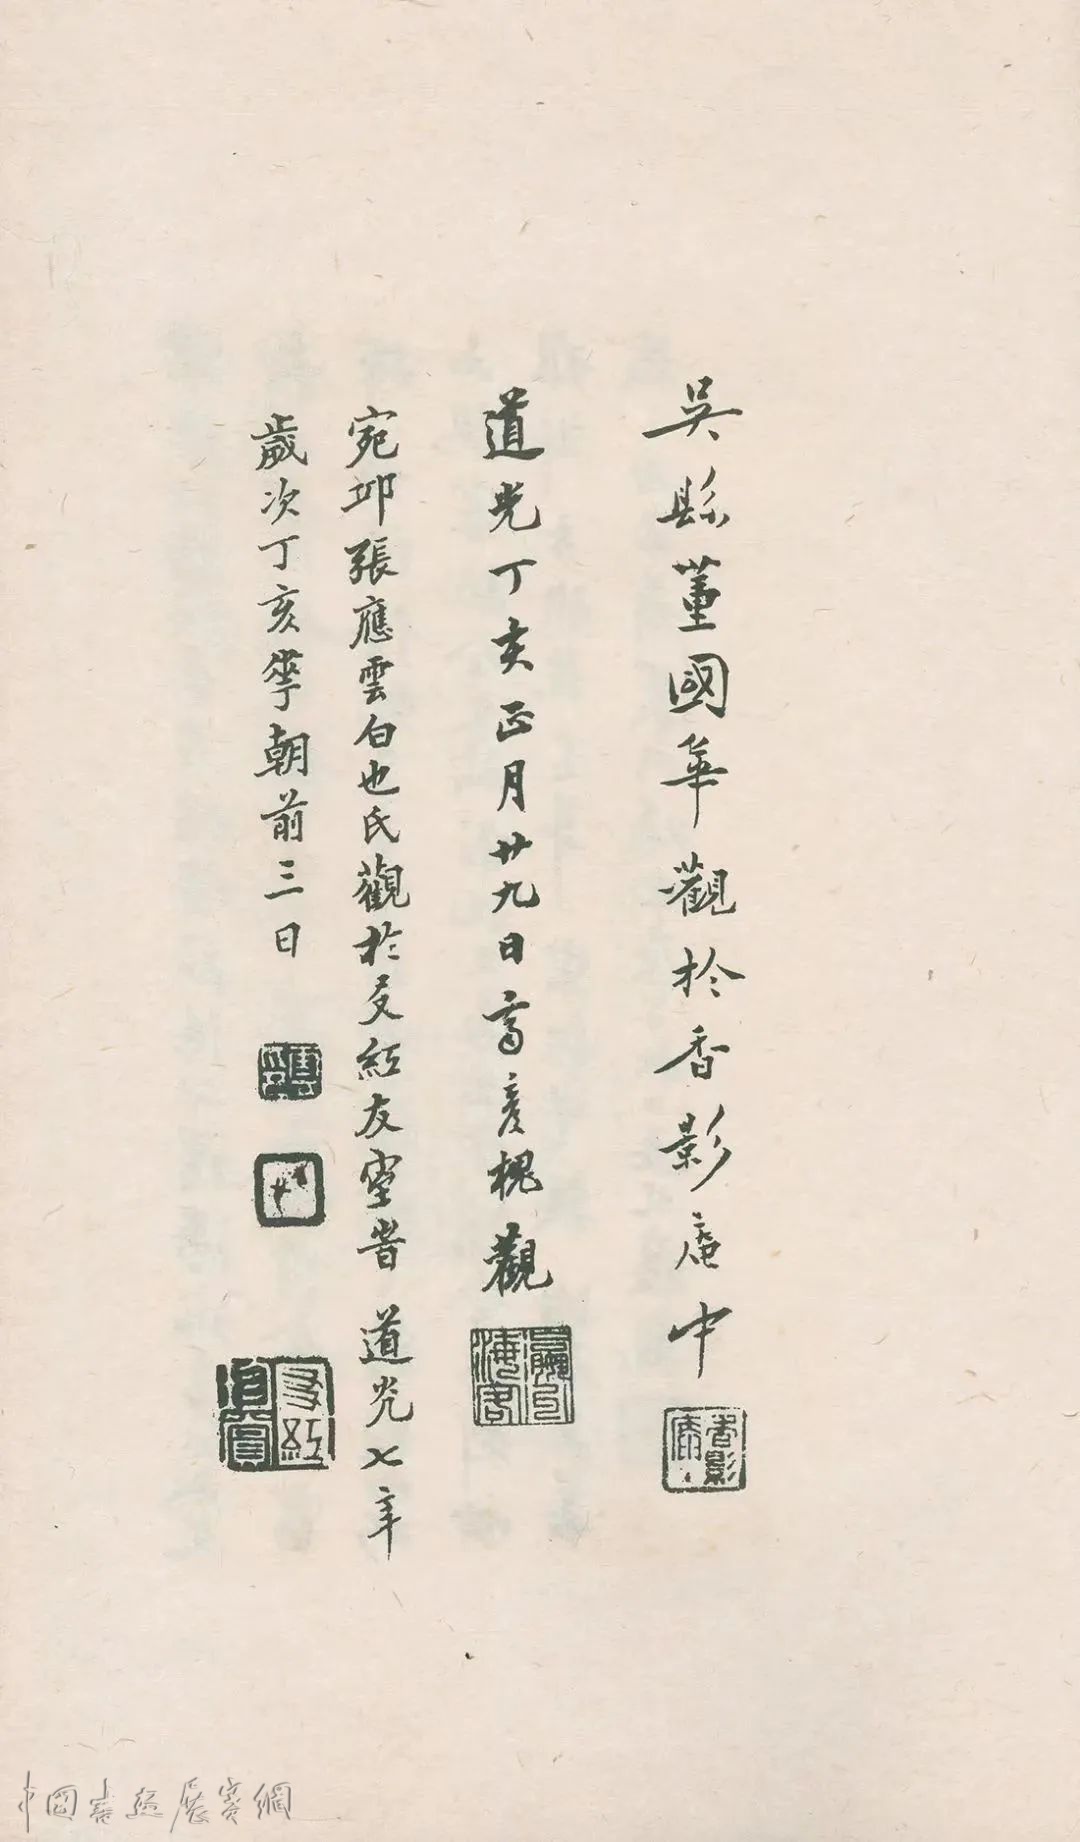 吳縣董國華觀於香影庵中
香影庵
道光丁亥正月廿九日齊彥槐觀
宛邱張應雲白也氏觀於友紅友室昔道光七年
歲次丁亥華朝前三日
友紅
中國書法展賽網